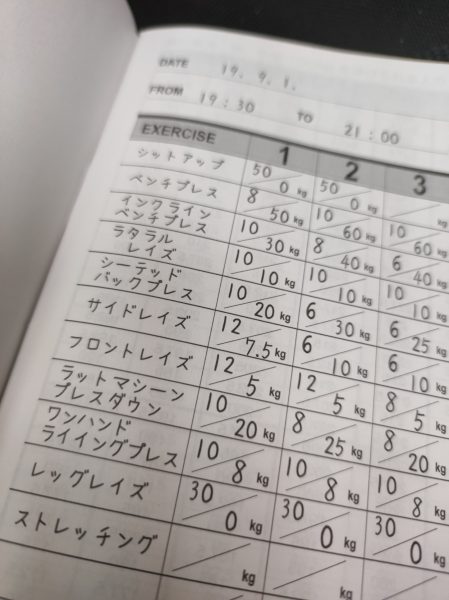 DATE 19. 9. 1.
FROM 19:30 TO 21:00
EXERCISE 1 2 3
シットアップ 50 0 kg 50 0 kg kg
ベンチプレス 8 50 kg 10 60 kg 10 60 kg
インクライン
ベンチプレス 10 30 kg 8 40 kg 6 40 kg
ラタラル
レイズ 10 10 kg 10 10 kg 10 10 kg
シーテッド
バックプレス 10 20 kg 6 30 kg 6 25 kg
サイドレイズ 12 7.5 kg 6 10 kg 6 10 kg
フロントレイズ 12 5 kg 12 5 kg 8 5 kg
ラットマシーン
プレスダウン 10 20 kg 8 25 kg 8 20 kg
ワンハンド
ライイングプレス 10 8 kg 10 8 kg 10 8 kg
レッグレイズ 30 0 kg 30 0 kg 30 0 kg
ストレッチング kg kg